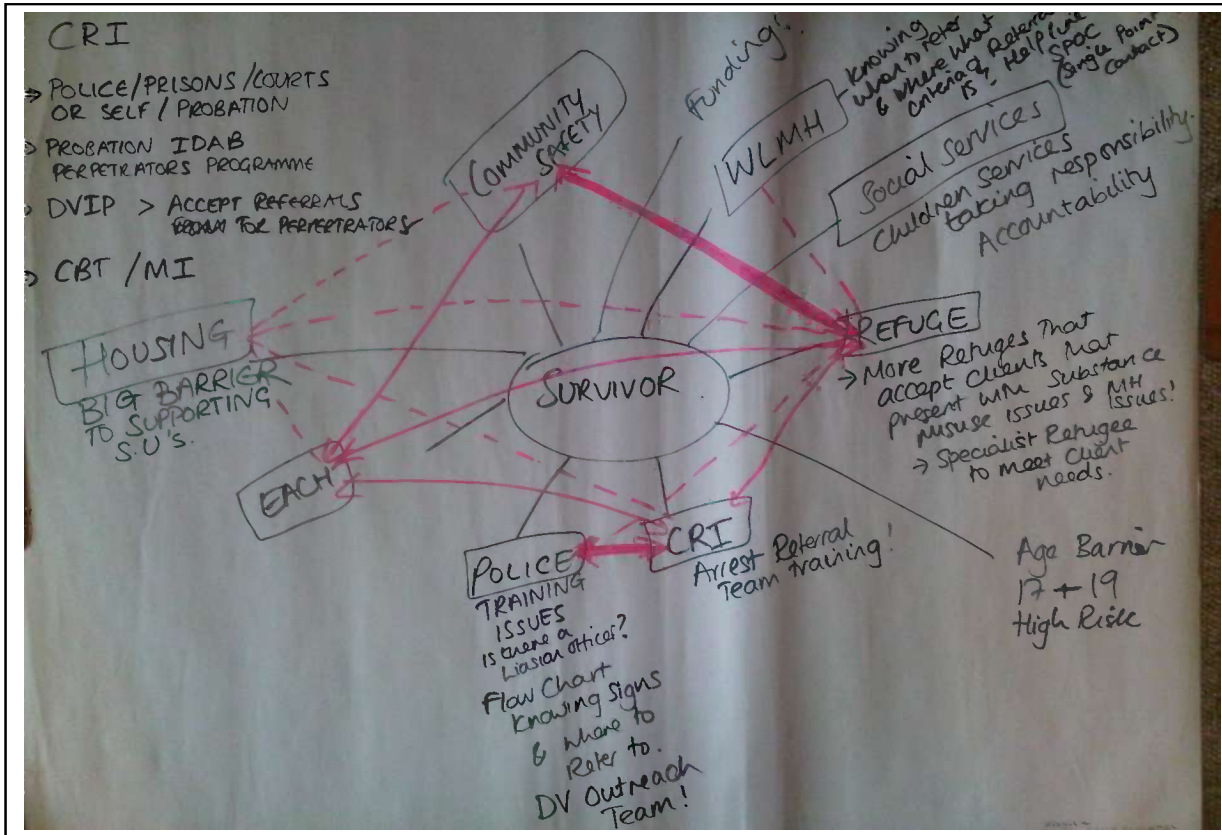 CRI
→ POLICE/PRISONS/COURTS
OR SELF/PROBATION
→ PROBATION IDAB
PERPETRATORS PROGRAMME
→ DVIP > ACCEPT REFERRALS
FOR PERPERTRATORS
→ CBT/MI
COMMUNITY
SAFETY
Funding!!
WLMH
- Knowing
when to refer
& where what
criteria Referral
is - Helpline
SPOC
(Single Point
Contact)
Social Services
Children Services
taking responsibility.
Accountability
HOUSING
BIG BARRIER
TO SUPPORTING
S.U's.
SURVIVOR
REFUGE
→ More Refuges That
accept Clients that
present with Substance
misuse issues & MH
issues!
→ Specialist Refugee
to meet Client
needs.
EACH
POLICE
TRAINING
ISSUES
is there a
Liasian officer?
Flow Chart
Knowing Signs
& where to
Refer to.
DV Outreach
Team!
CRI
Arrest Referral
Team Training!
Age Barrier
17 + 19
High Risk